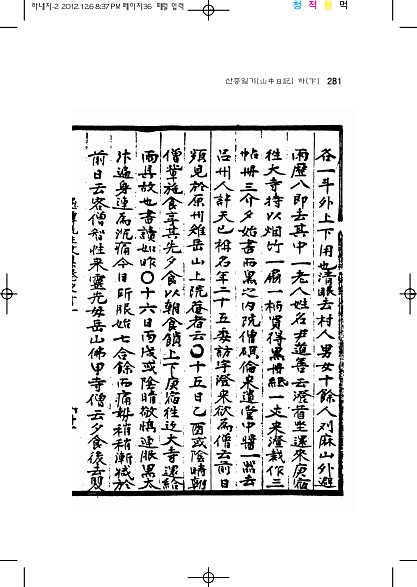 하내지-2 2012.12.6 8:37 PM 페이지36 패럴 입력
청 적 황 먹
산중일기(山中日記) 하(下) 281
各一斗外上下用也清眠去村人男女十餘人刈麻山外避
雨歷八即去其中一老人姓名尹道善云澄着坐運來庚宿
往大寺持以烟竹一扇一柄買得黑冊紙一丈來澄裁作三
帖冊三介夕始書雨黑之内院僧碩倫來道堂中醬一器去
呂州人許天已相名年二十五委訪字澄來欲爲僧云前日
頻見於原州雉岳山上院菴者云〇十五日乙酉或陰晴朝
僧輩施食享其先夕食以朝食饋上下庚宿往近大寺運給
雨具故也書讀如昨〇十六日丙戌或陰晴敬慎連服黑太
汁遍身連爲流痛今日所服始七合餘而痛稍稍漸减於
前日云客僧智性來靈光母岳山佛甲寺僧云夕食後去